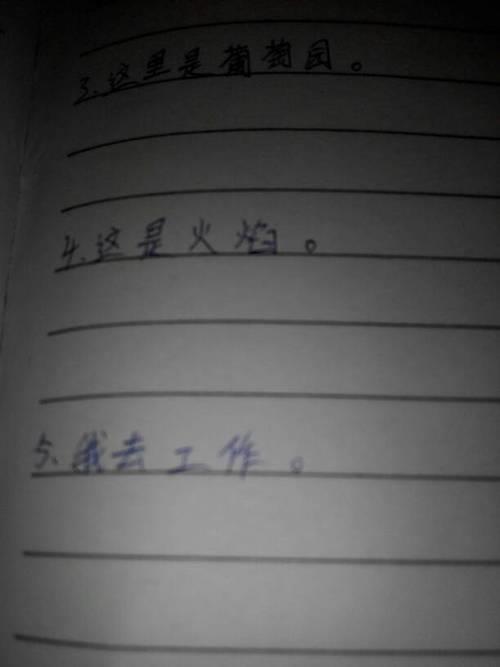 3.这里是葡萄园。
4.这是火焰。
5.我去工作。